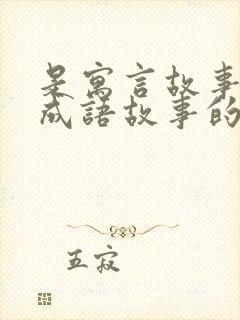 是寓言故事
成語故事的
五寂